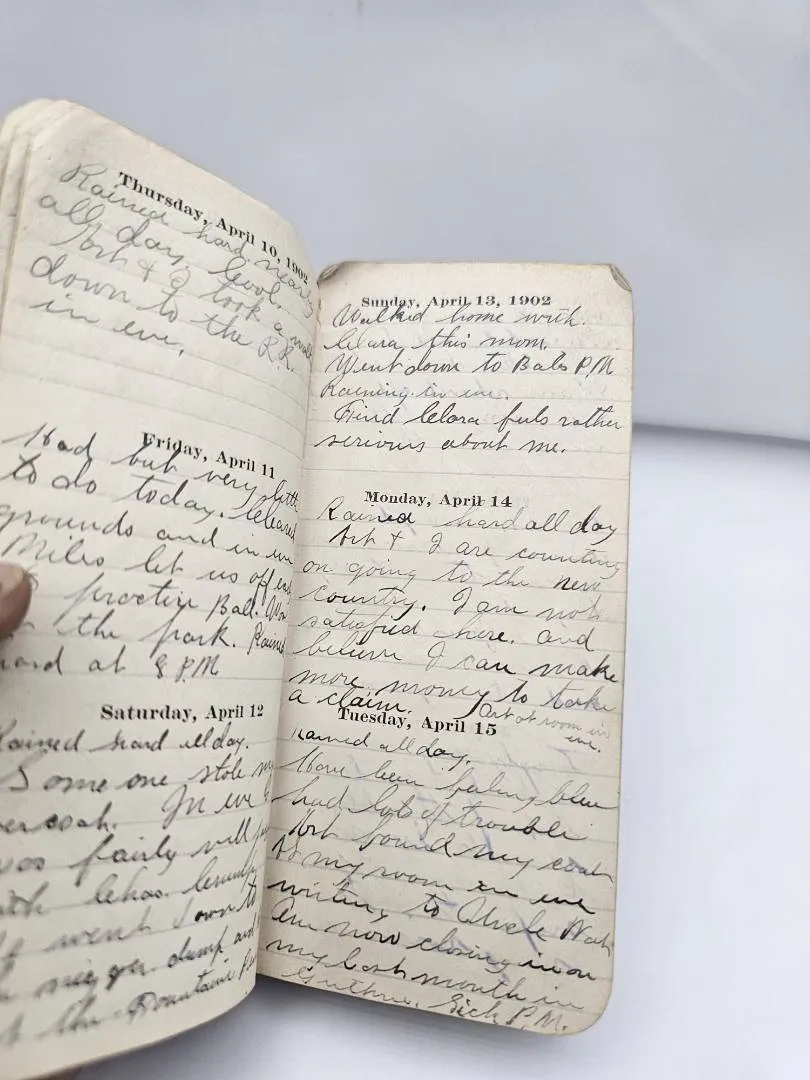 Thursday, April 10, 1902
Rained hard nearly
all day. Cool.
Art & I took a walk
down to the R.R.
in eve.
Friday, April 11
Had but very little
to do today. Cleaned
grounds and in eve
Miles let us off
practice Ball.
the park. Rained
hard at 8 P.M
Saturday, April 12
Rained hard all day.
Some one stole my
overcoat. In eve
was fairly well
with Chas.
went down to
nigger dump and
at the Fountain
Sunday, April 13, 1902
Walked home with
Clara this morn.
Went down to Bales P.M
Raining in eve.
Find Clara feels rather
serious about me.
Monday, April 14
Rained hard all day
Art & I are counting
on going to the new
country. I am not
satisfied here. and
believe I can make
more money to take
a claim. Art at room in
eve.
Tuesday, April 15
Rained all day.
Have been feeling blue
had lots of trouble
Art found my coat
At my room in eve
writing to Uncle
Am now closing in on
my last month in
Guthrie. Sick P.M.